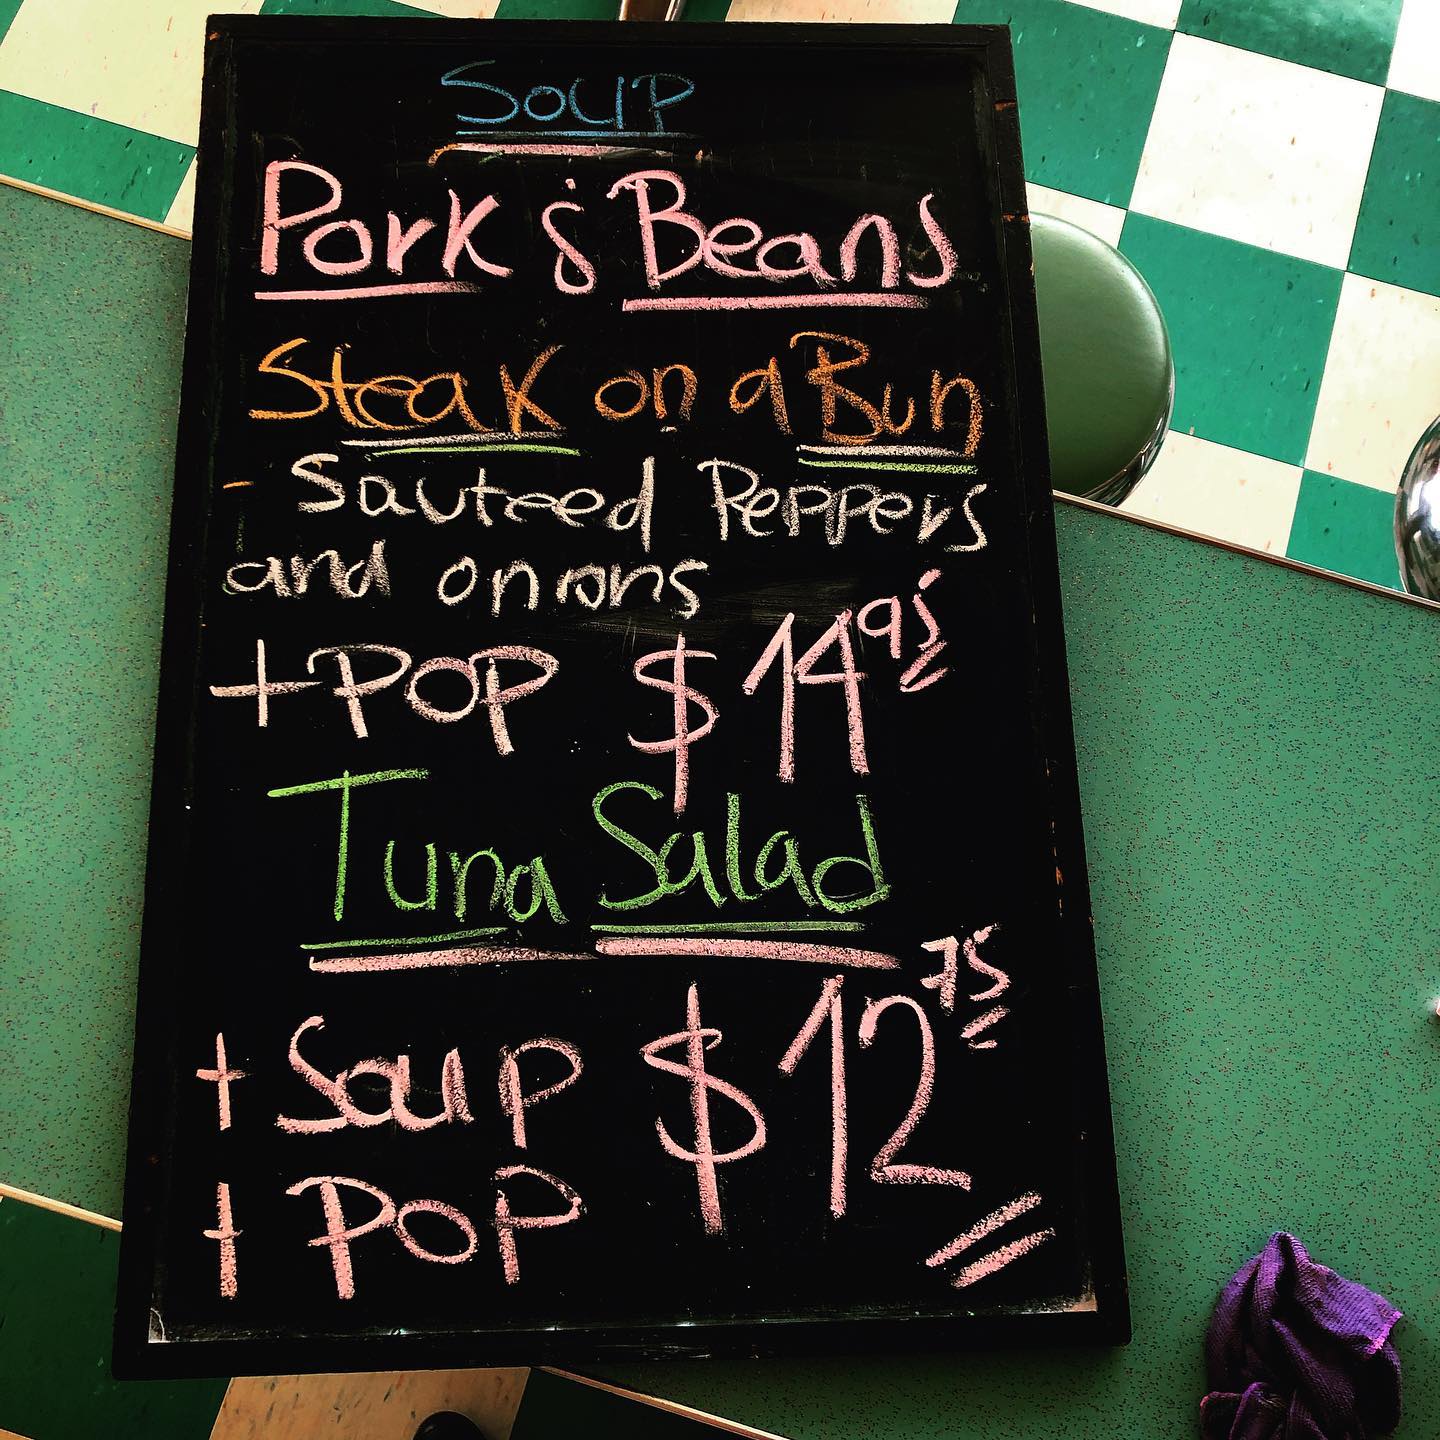 Soup
Pork & Beans
Steak on a Bun
- Sauteed Peppers
and onions
+ POP $14.95
Tuna Salad
+ Soup $12.75
+ POP